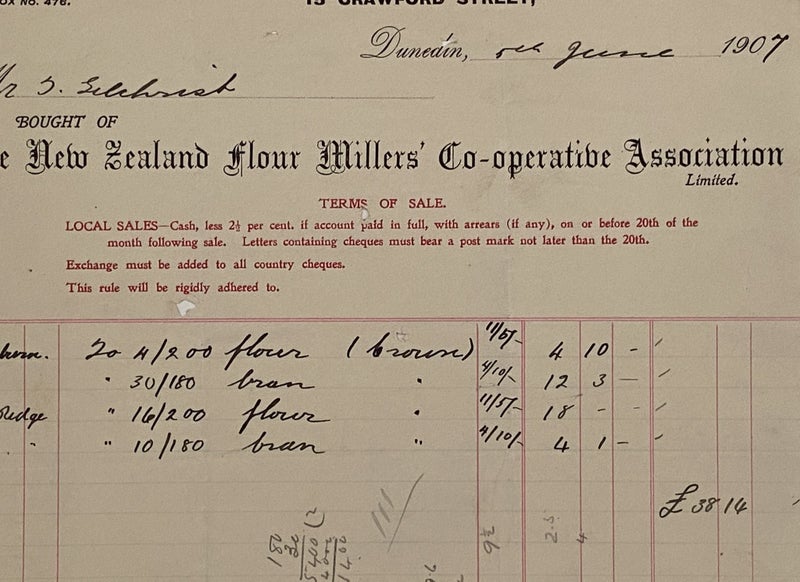 OX NO. 476.
15 CRAWFORD STREET,
Dunedin, 5th June 1907
Mr T. Gilchrist
BOUGHT OF
e New Zealand Flour Millers' Co-operative Association
Limited.
TERMS OF SALE.
LOCAL SALES—Cash, less 2½ per cent. if account paid in full, with arrears (if any), on or before 20th of the
month following sale. Letters containing cheques must bear a post mark not later than the 20th.
Exchange must be added to all country cheques.
This rule will be rigidly adhered to.
To 4/200 flour (brown) 11/5/- 4 10 -
" 30/180 bran " 4/10/- 12 3 —
Ridge " 16/200 flour " 11/5/- 18 - -
" " 10/180 bran " 4/10/- 4 1 -
£ 38 14
180
30
5400